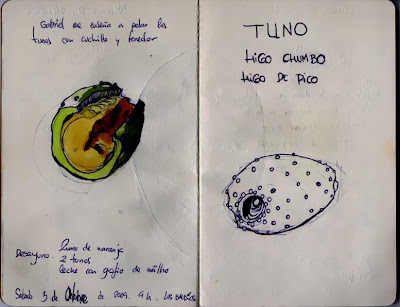 Gabriel me enseña a pelar los
tunos con cuchillo y tenedor
Desayuno.
Zumo de naranja
2 tunos
leche con gofio de millo
Sábado 3 de Octubre de 2009. 9 h.
TUNO
HIGO CHUMBO
HIGO DE PICO